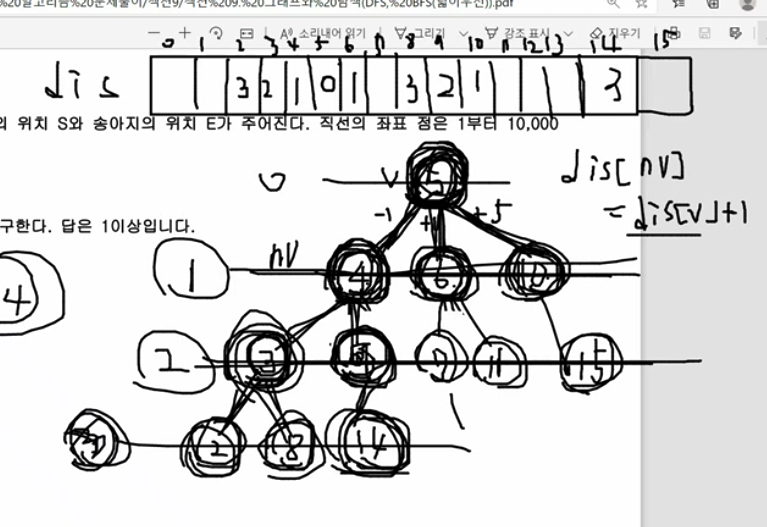 %20알고리즘%20문제풀이/섹션9/섹션%209.%20그래프와%20탐색(DFS,%20BFS(넓이우선)).pdf
소리내어 읽기 그리기 강조 표시 지우기
0 1 2 3 4 5 6 7 8 9 10 11 12 13 14 15
dis 3 2 1 0 1 3 2 1 3
의 위치 S와 송아지의 위치 E가 주어진다. 직선의 좌표 점은 1부터 10,000
0 V 5 dis[nv]
-1 +1 +5 = dis[v]+1
구한다. 답은 1이상입니다.
1 nv 4 6 10
14
2 3 7 11 15
3 2 8 14